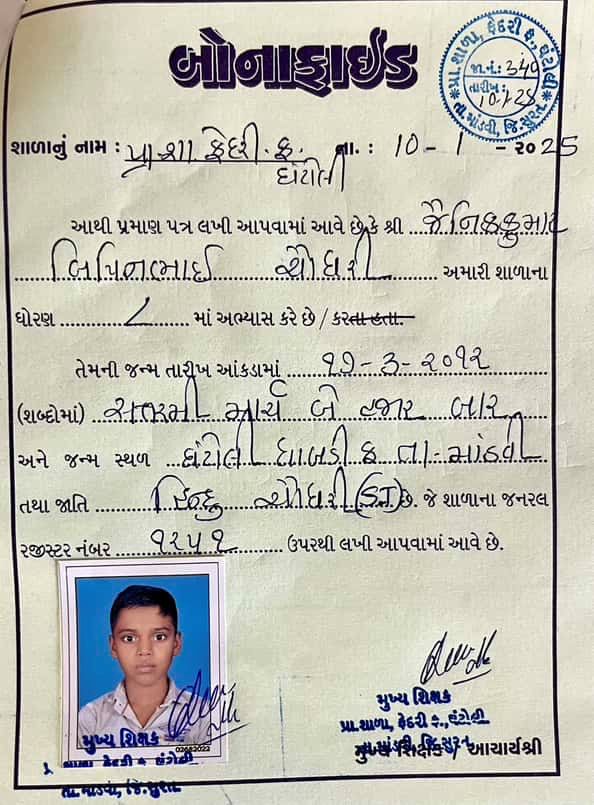 બોનાફાઈડ
પ્રા.શાળા, ફેદરી ફ, ઘંટોલી
જા.નં.: 340
તારીખ:
10-1-25
તા.માંડવી, જિ.સુરત
શાળાનું નામ : પ્રા શાળા ફેદરી. ફ. તા. : 10 - 1 - ૨૦25
ઘંટોલી
આથી પ્રમાણ પત્ર લખી આપવામાં આવે છે કે શ્રી જૈનિકકુમાર
બિપિનભાઈ ચૌધરી અમારી શાળાના
ધોરણ ૮ માં અભ્યાસ કરે છે / કરતા હતા.
તેમની જન્મ તારીખ આંકડામાં ૧૭-૩-૨૦૧૨
(શબ્દોમાં) સત્તરમી માર્ચ બે હજાર બાર
અને જન્મ સ્થળ ઘંટોલી ધાબડી ફ તા-માંડવી
તથા જાતિ હિન્દુ ચૌધરી (ST) છે. જે શાળાના જનરલ
રજીસ્ટર નંબર ૧૨૫૧ ઉપરથી લખી આપવામાં આવે છે.
મુખ્ય શિક્ષક
પ્રા.શાળા, ફેદરી ફ., ઘંટોલી
તા.માંડવી, જિ.સુરત
મુખ્ય શિક્ષક / આચાર્યશ્રી
મુખ્ય શિક્ષક
શાળા ફેદરી ફ ઘંટોલી
તા.માંડવી, જિ.સુરત